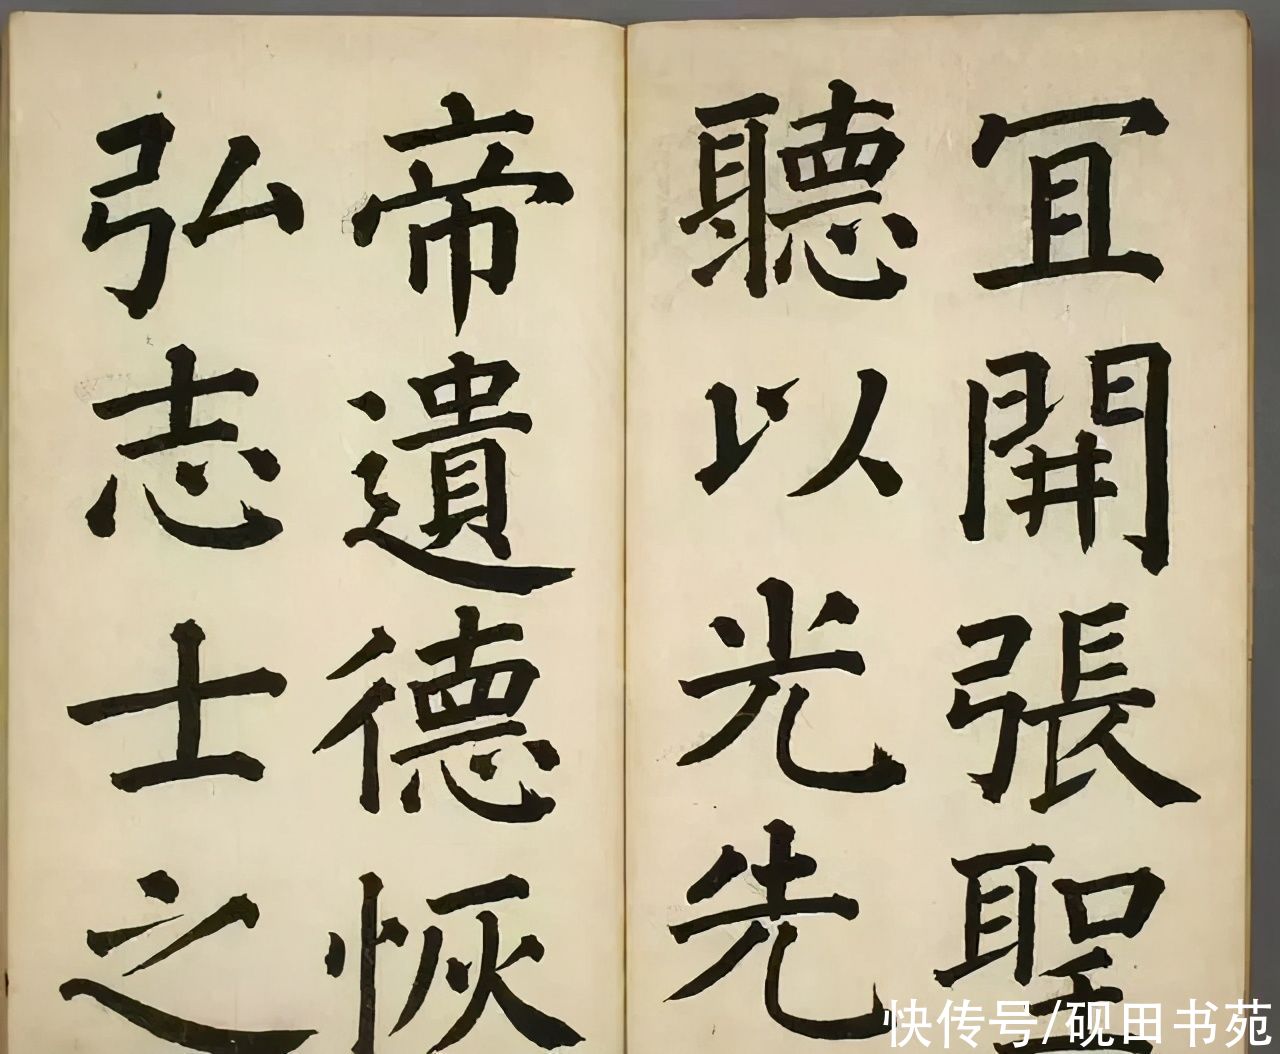 冝開張聖
聽以光先
帝遺德恢
弘志士之
快传号/砚田书苑